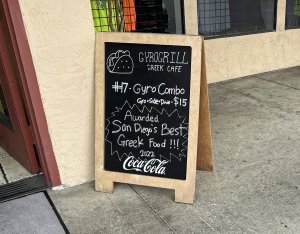 GYROGRILL
GREEK CAFE
#7 - Gyro Combo
Gyro + Side + Drink - $15
Awarded
San Diego's Best
Greek Food !!!
2022
Coca-Cola